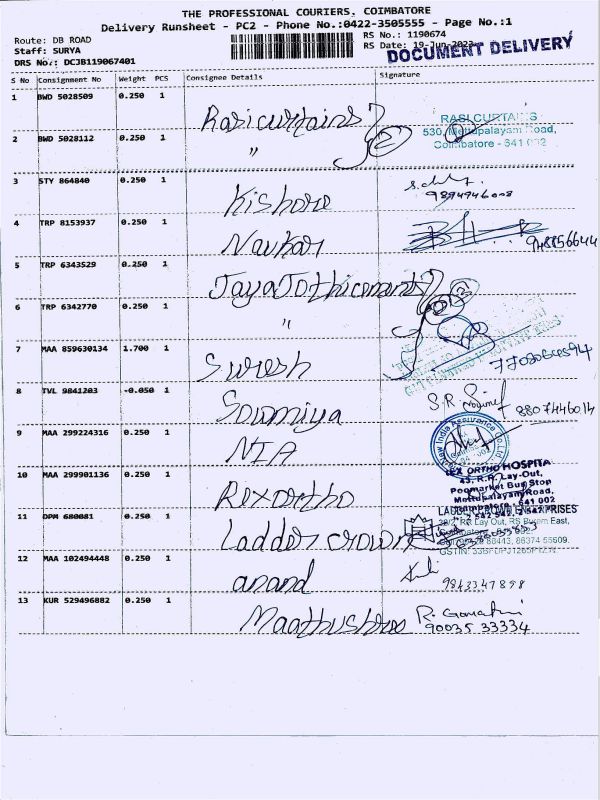 THE PROFESSIONAL COURIERS, COIMBATORE
Delivery Runsheet - PC2 - Phone No.:0422-3505555 - Page No.:1
Route: DB ROAD
RS No.: 1190674
Staff: SURYA
RS Date: 19-Jun-2023
DRS No.: DCJB119067401
DOCUMENT DELIVERY
S No Consignment No Weight PCS Consignee Details Signature
1 BWD 5028509 0.250 1 Rasi curtains
RASI CURTAINS
2 BWD 5028112 0.250 1 " 2
530, Mettupalayam Road,
Coimbatore - 641 002
3 STY 864840 0.250 1 Kishore
9894946008
4 TRP 8153937 0.250 1 Navkar
948856644
5 TRP 6343529 0.250 1 Jaya Jothi
6 TRP 6342770 0.250 1 "
7 MAA 859630134 1.700 1 Suresh
8 TVL 9841203 -0.050 1 Sowmiya
S.R.
8807446014
9 MAA 299224316 0.250 1 NIA
New India Assurance Co. Ltd.
10 MAA 299901136 0.250 1 Rex ortho
REX ORTHO HOSPITA
43, R.R. Lay-Out,
Poomarket Bus Stop
Mettupalayam Road,
Coimbatore - 641 002
11 DPM 680081 0.250 1 Ladder crown
LADDER CROWN ENTERPRISES
RR Lay Out, RS Puram East,
86374 55609.
12 MAA 102494448 0.250 1 anand
9843347898
13 KUR 529496882 0.250 1 Maathushree
R. Gomathi
90035 33334